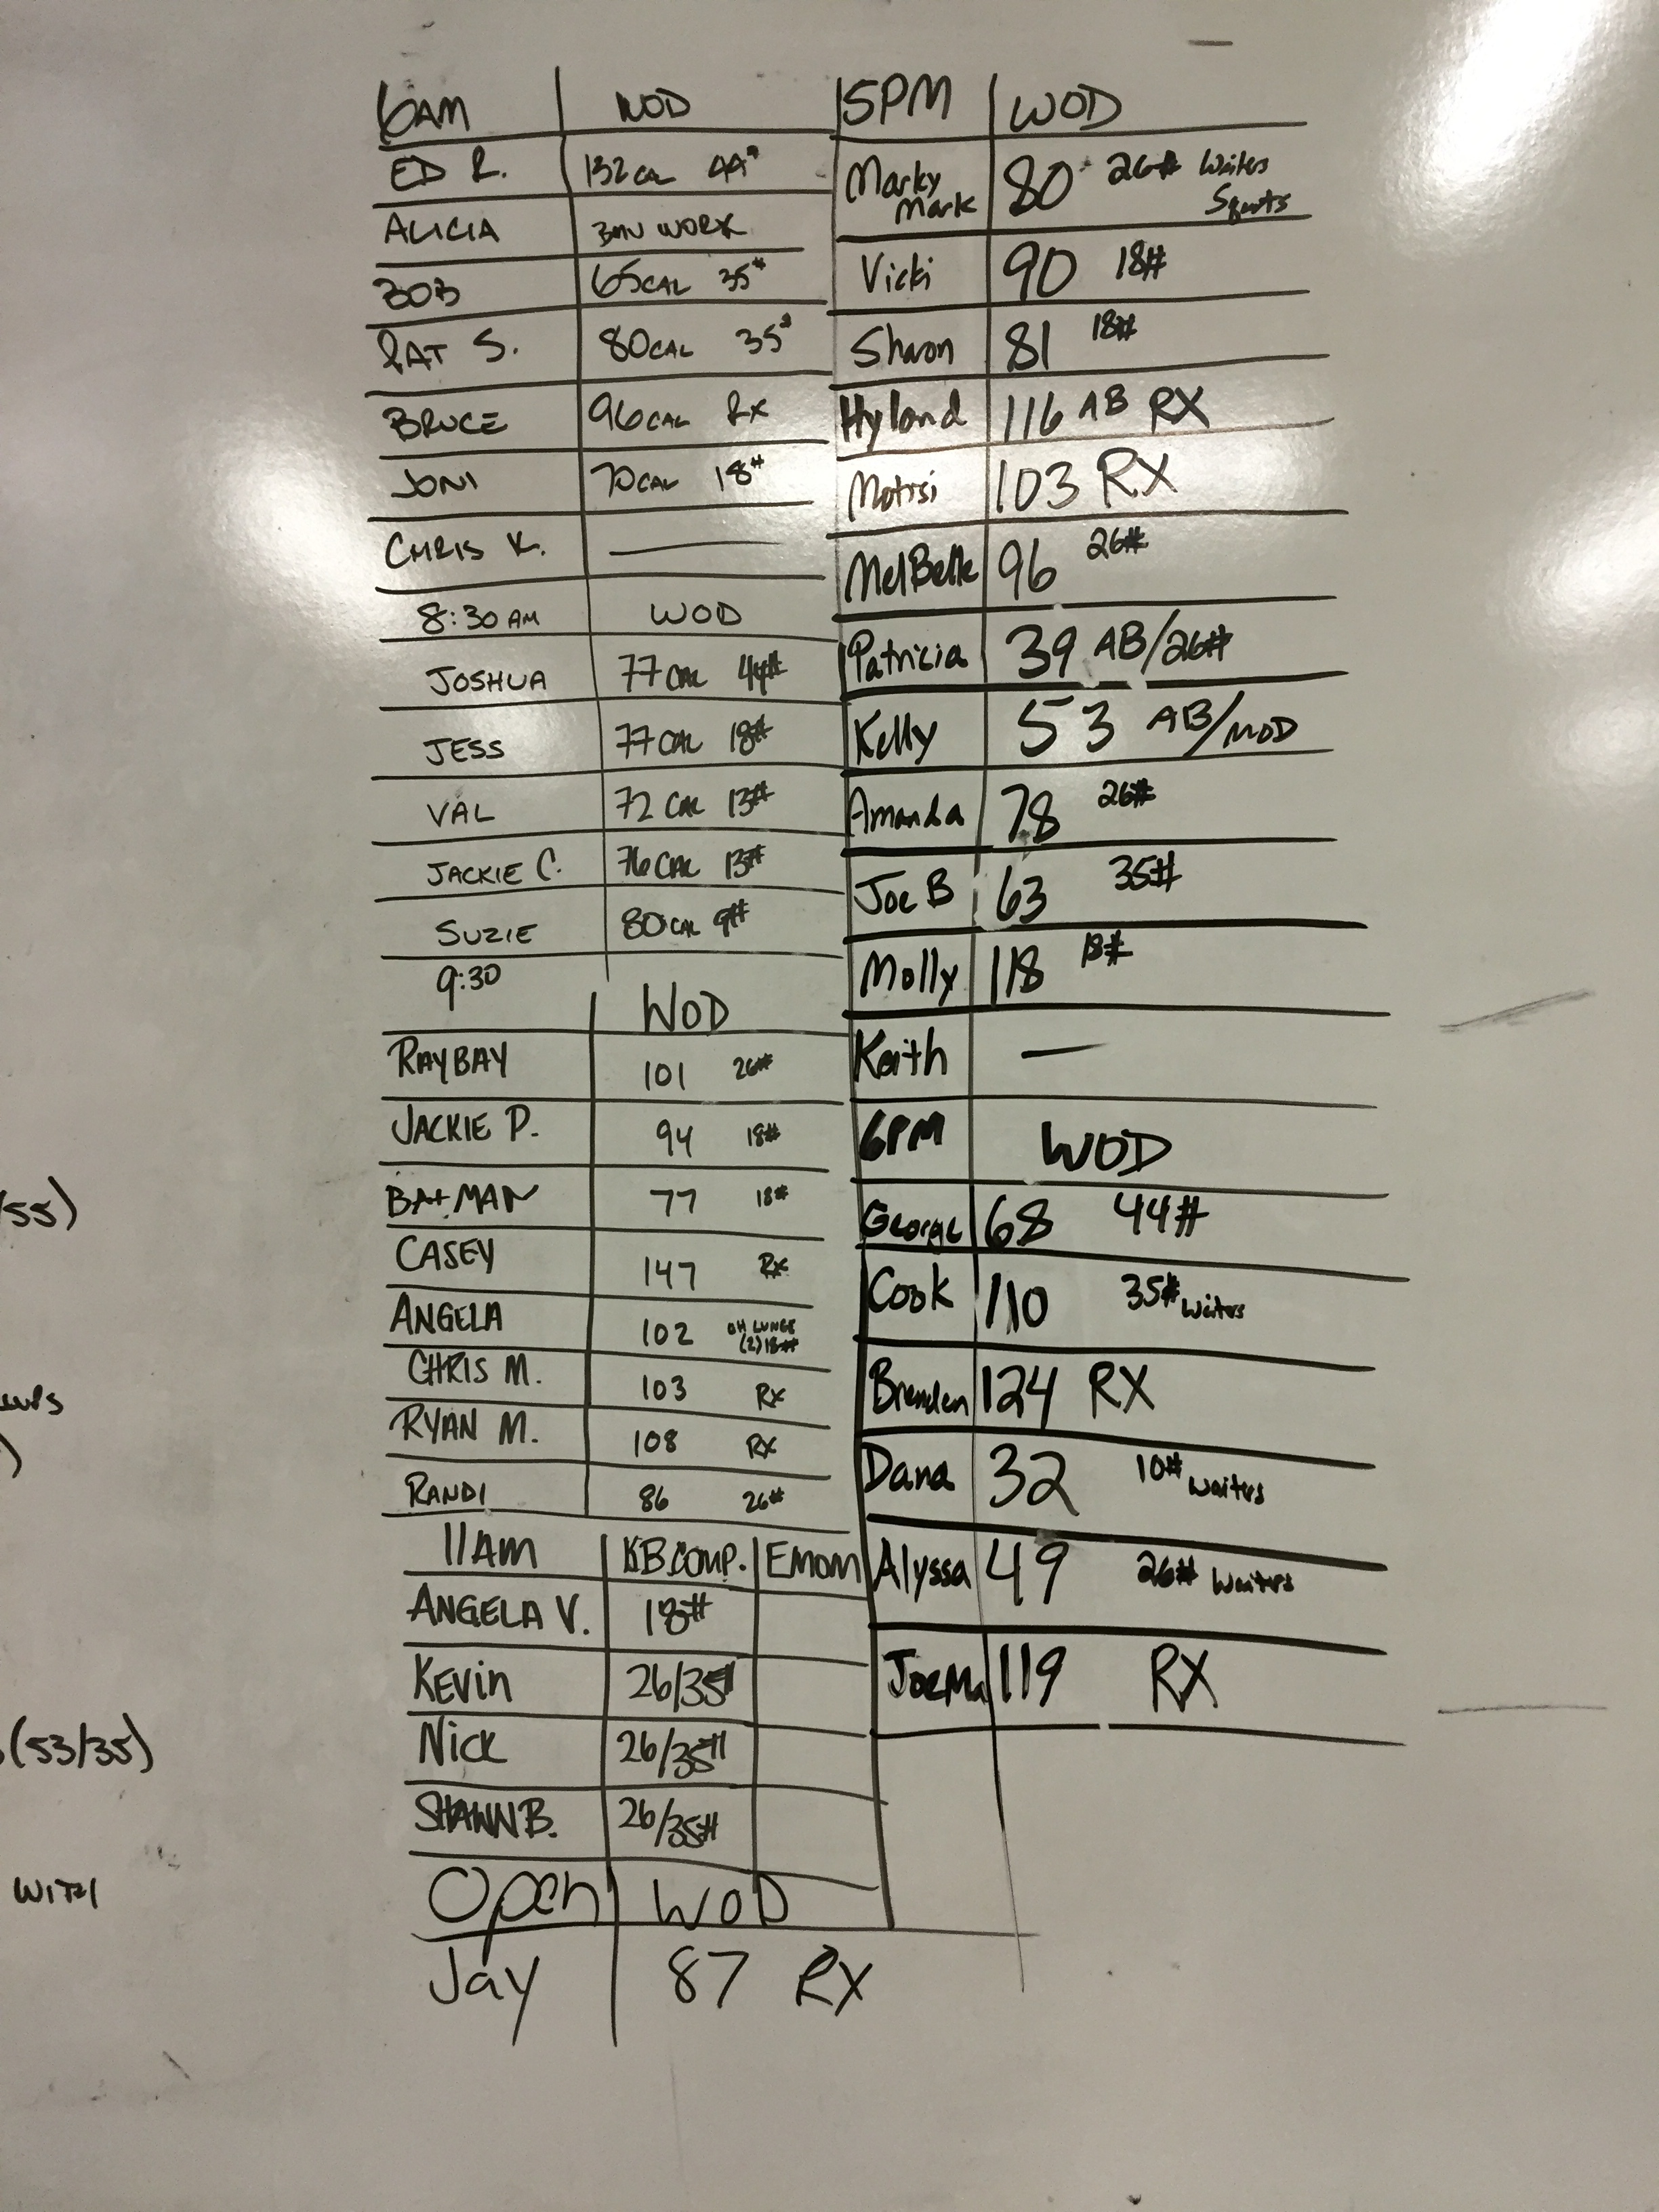 6AM WOD
ED R. 132 CAL 44#
ALICIA WORK
BOB 65 CAL 35#
PAT S. 80 CAL 35#
BRUCE 96 CAL RX
JONI 70 CAL 18#
CHRIS K. —
8:30 AM WOD
JOSHUA 77 CAL 44#
JESS 77 CAL 18#
VAL 72 CAL 13#
JACKIE C. 76 CAL 13#
SUZIE 80 CAL 9#
9:30 WOD
RAYBAY 101 26#
JACKIE P. 94 18#
BATMAN 77 18#
CASEY 147 RX
ANGELA 102 OH LUNGE
(2) 18#
CHRIS M. 103 RX
RYAN M. 108 RX
RANDI 86 26#
11AM KB COMP. EMOM
ANGELA V. 18#
KEVIN 26/35#
NICK 26/35#
SHAWN B. 26/35#
Open WOD
Jay 87 RX
5PM WOD
Marky Mark 80 26# Waiters Squats
Vicki 90 18#
Sharon 81 18#
Hyland 116 AB RX
Motrsi 103 RX
MelBelle 96 26#
Patricia 39 AB/26#
Kelly 53 AB/MOD
Amanda 78 26#
Joe B 63 35#
Molly 118 18#
Keith —
6PM WOD
George 68 44#
Cook 110 35# Waiters
Brenden 124 RX
Dana 32 10# Waiters
Alyssa 49 26# Waiters
JoeMa 119 RX
/55)
)
(53/35)
WITH